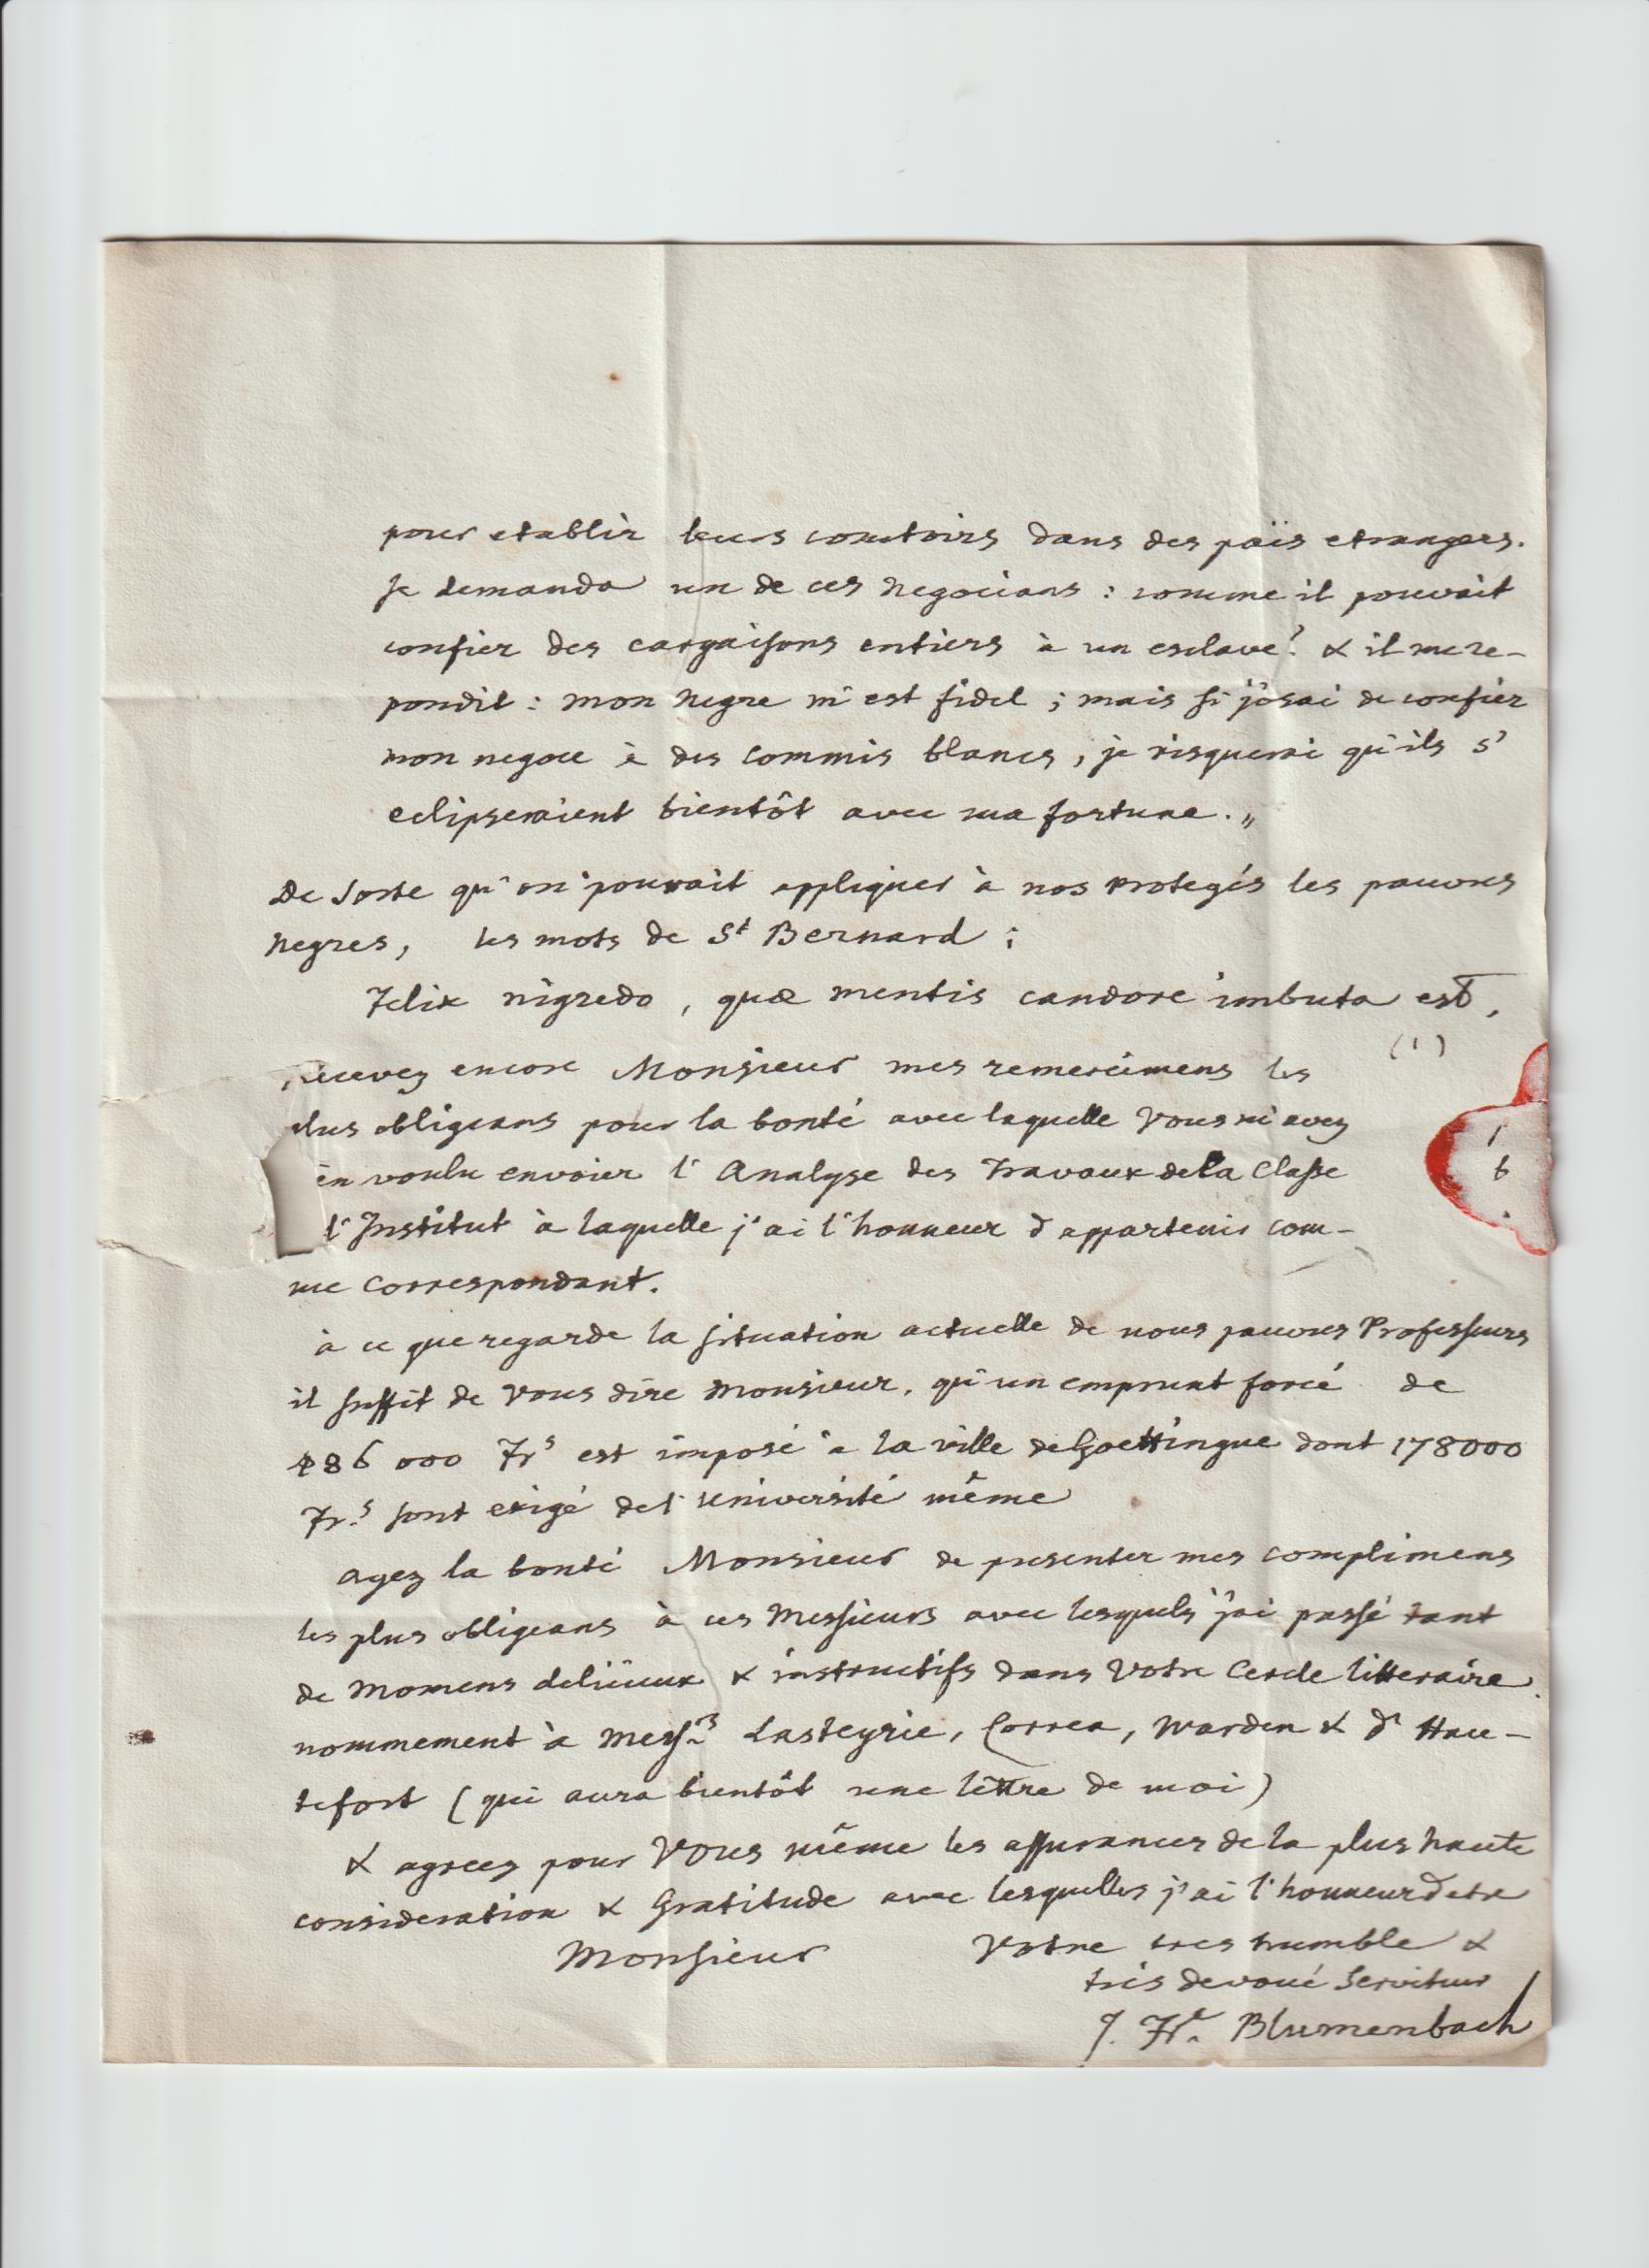 pour etablir leurs comtoirs dans des païs etrangers.
Je demanda un de ces negocians : comme il pouvait
confier des cargaisons entiers à un esclave? & il me re-
pondit : mon negre m'est fidel ; mais si j'osai de confier
mon negoce à des commis blancs, je risquerai qu'ils s'
eclipseraient bientôt avec ma fortune.„
De sorte qu'on pouvait appliquer à nos protegés les pauvres
negres, les mots de St Bernard :
Felix nigredo, quæ mentis candore imbuta est.
(1)
Recevez encore Monsieur mes remercimens les
plus obligeans pour la bonté avec laquelle Vous m'avez
en voulu envoier l'Analyse des Travaux de la Classe
l'Institut à laquelle j'ai l'honneur d'appartenir com-
me Correspondant.
à ce que regarde la situation actuelle de nous pauvres Professeurs
il suffit de Vous dire Monsieur, qu'un emprunt forcé de
486 000 Frs est imposé à la ville de Goettingue dont 178000
Frs sont exigé de l'université même
ayez la bonté Monsieur de presenter mes complimens
les plus obligeans à ces Messieurs avec lesquels j'ai passé tant
de momens delicieux & instructifs dans Votre Cercle litteraire.
nommement à Messrs Lasteyrie, Correa, Warden & Dr Hau-
tefort (qui aura bientôt une lettre de moi)
& agreez pour Vous même les assurances de la plus haute
consideration & Gratitude avec lesquelles j'ai l'honneur d'etre
Monsieur Votre tres humble &
trés devoué Serviteur
J. Fr. Blumenbach